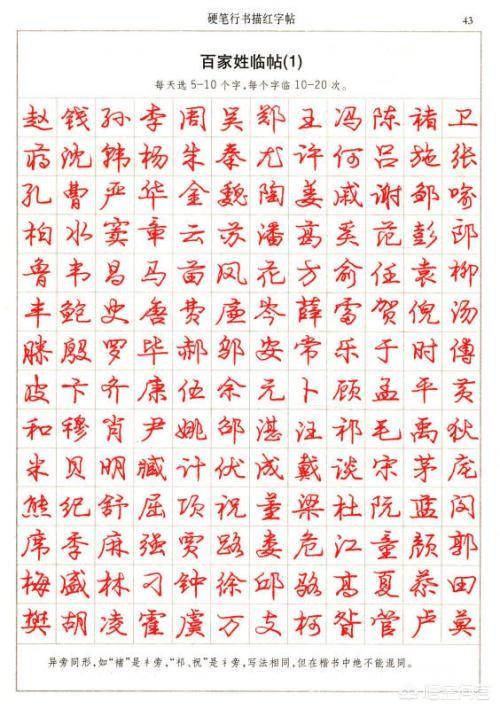 硬笔行书描红字帖
43
百家姓临帖(1)
每天选5-10个字,每个字临10-20次。
赵钱孙李周吴郑王冯陈褚卫
蒋沈韩杨朱秦尤许何吕施张
孔曹严华金魏陶姜戚谢邹喻
柏水窦章云苏潘葛奚范彭郎
鲁韦昌马苗凤花方俞任袁柳
丰鲍史唐费廉岑薛雷贺倪汤
滕殷罗毕郝邬安常乐于时傅
皮卞齐康伍余元卜顾孟平黄
和穆肖尹姚邵湛汪祁毛禹狄
米贝明臧计伏成戴谈宋茅庞
熊纪舒屈项祝董梁杜阮蓝闵
席季麻强贾路娄危江童颜郭
梅盛林刁钟徐邱骆高夏蔡田
樊胡凌霍虞万支柯昝管卢莫
异旁同形,如“褚”是衤旁,“祁、祝”是礻旁,写法相同,但在楷书中绝不能混同。